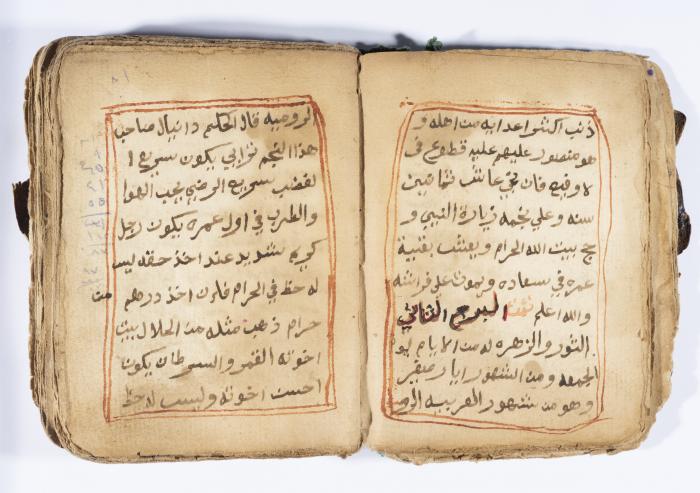 ذنب اكثر اعدايه من اهله و
هو منصور عليهم عليه قطوع في
لا وقيع فان نجي عاش ثمانين
سنه وعلي نجمه زيارة النبي و
حج بيت الله الحرام ويعيش بقية
عمره في سعاده ويموت علي فراشه
والله اعلم تمت البرج الثاني
الثور والزهره له من الايام يوم
الجمعه ومن الشهور ايار صفر
وهو من شهور العربيه
الروميه قال الحكيم دانيال صاحب
هذا النجم ترابي يكون سريع ا
لغضب سريع الرضي يحب الهوا
والطرب في اول عمره يكون رجل
كريم شديد عند اخذ حقه ليس
له حظ في الحرام فان اخذ درهم من
حرام ذهب مثله من الحلال بيت
اخوته القمر والسرطان يكون
احسن اخوته وليس له حظ